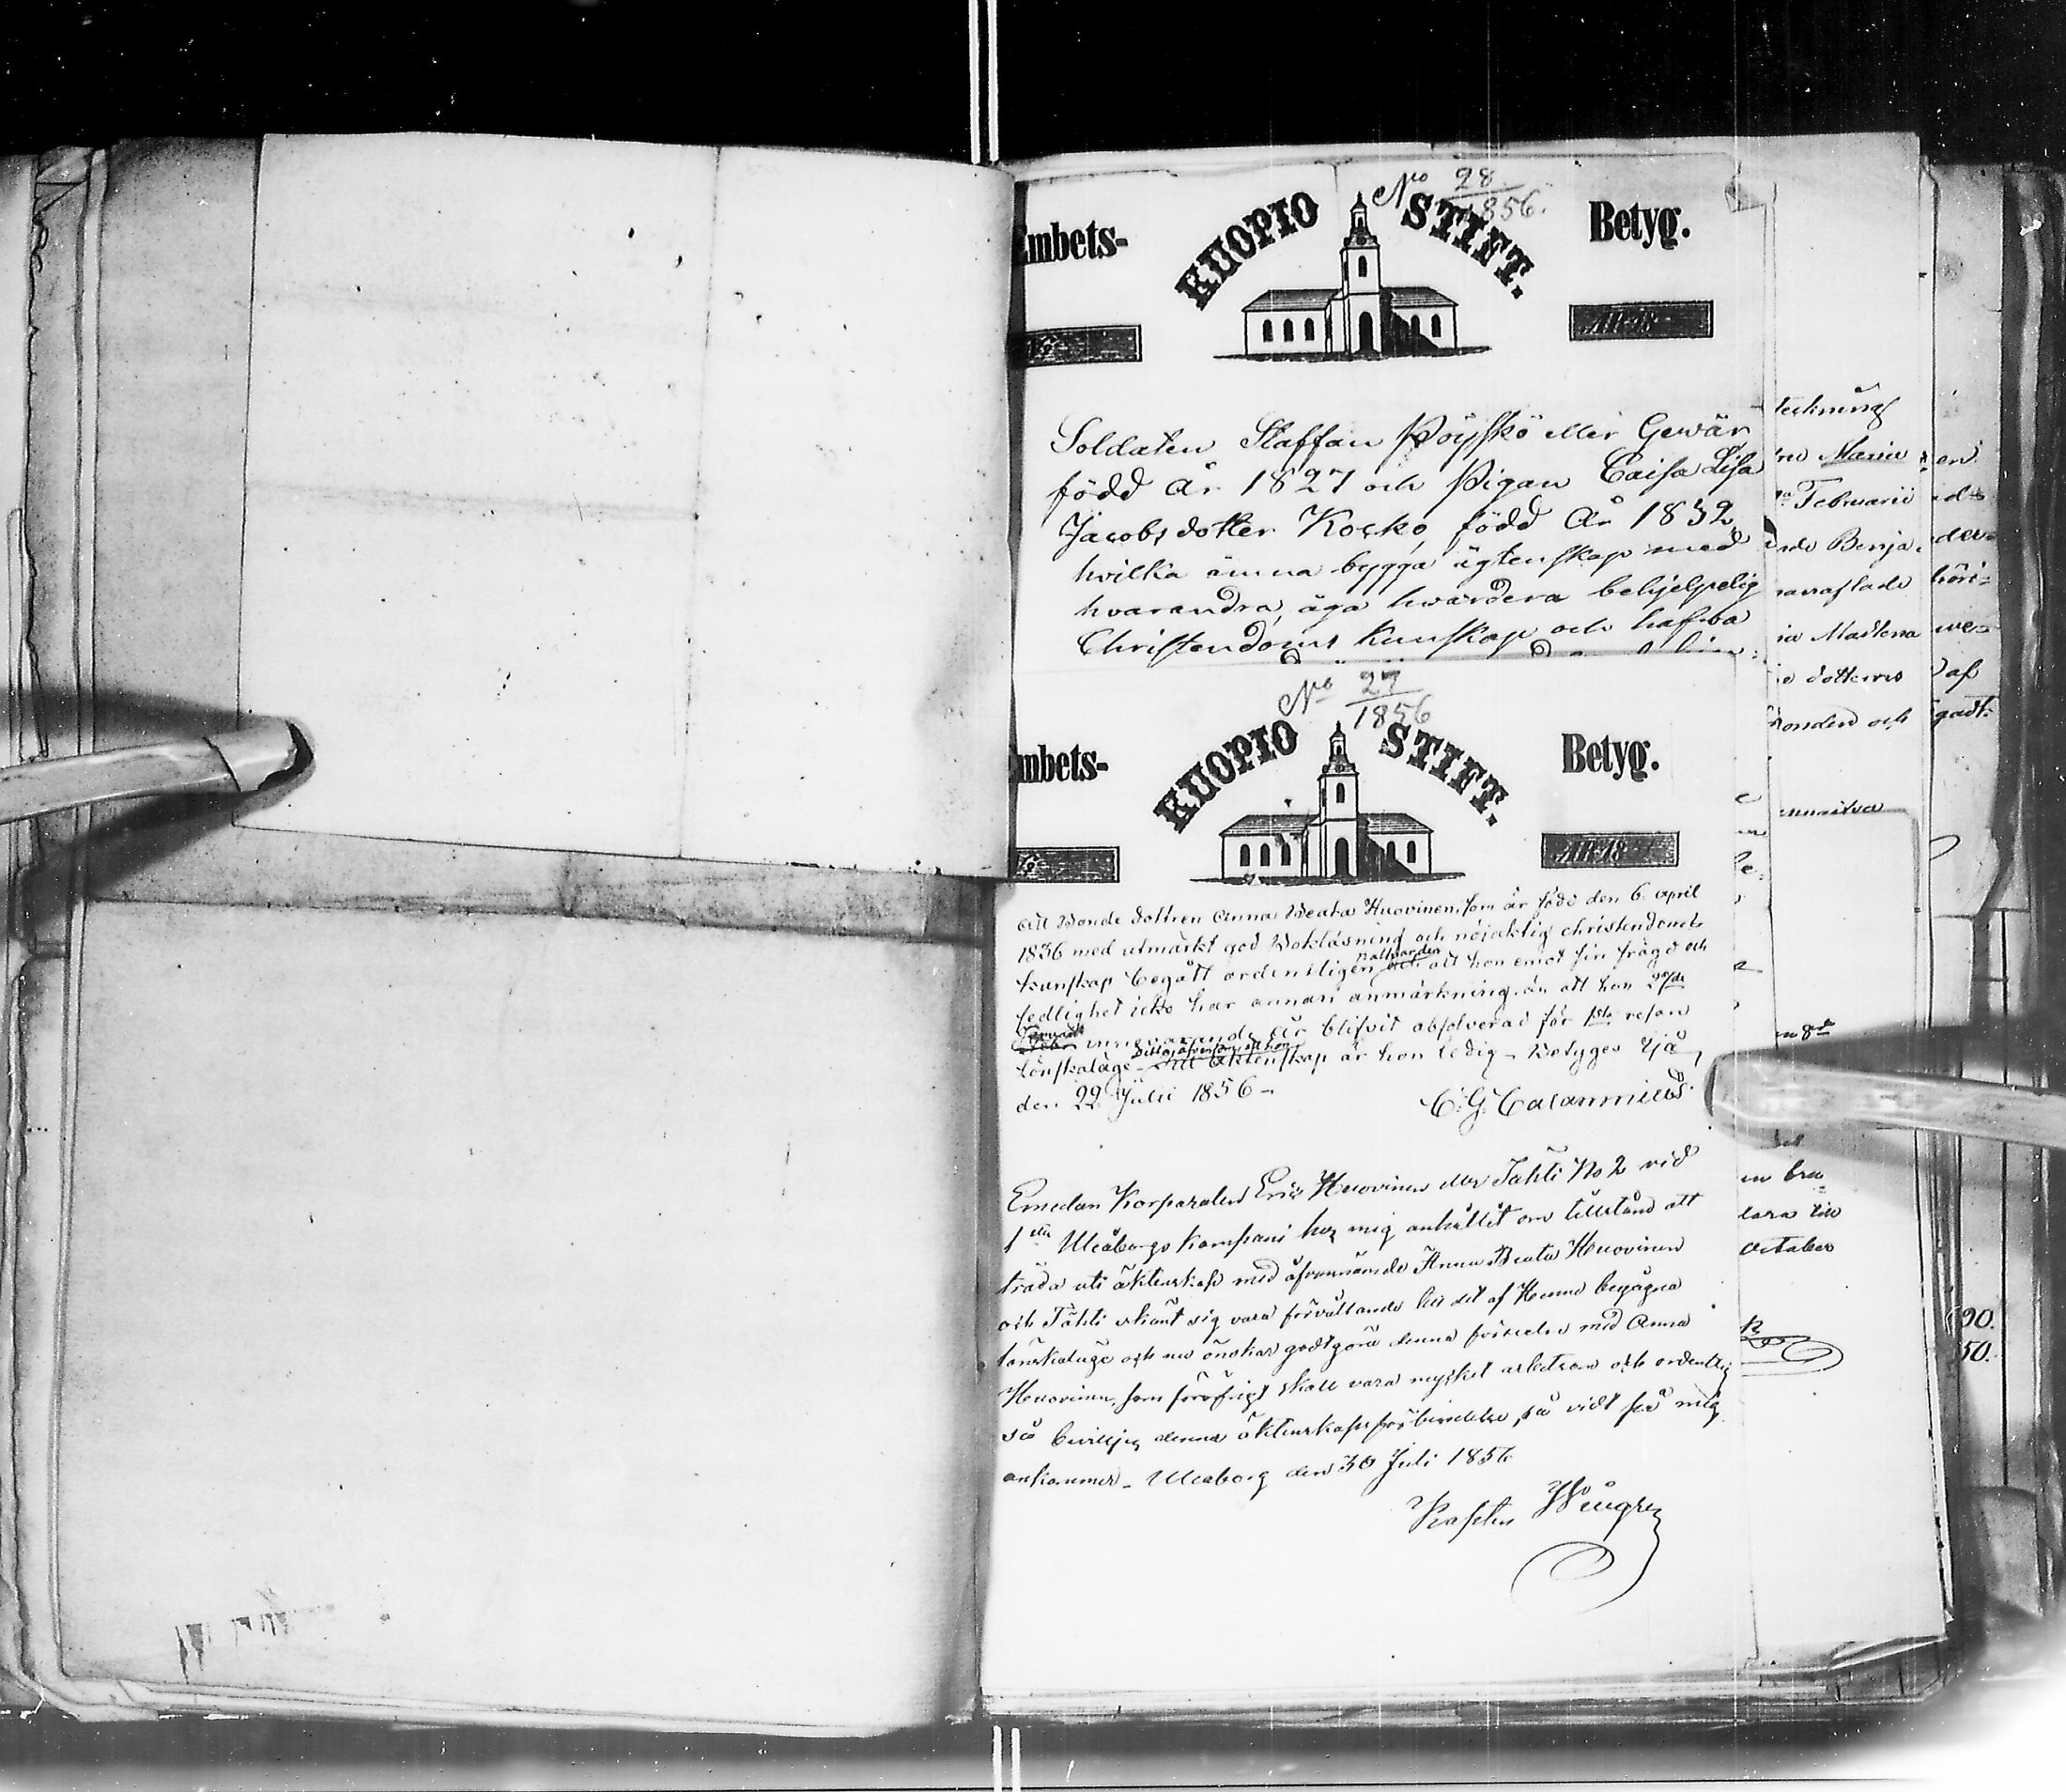 No 28
1856.
Embets-
KUOPIO STIFT.
Betyg.
År 18
Soldaten Staffan Pöyskö eller Gewär
född År 1827 och Pigan Caisa Lisa
Jacobsdotter Koско född År 1832,
hvilka ämna bygga ägtenskap med
hvarandra, äga hvardera behjelpelig
Christendoms kunskap och hafwa
No 27
1856
Embets-
KUOPIO STIFT.
Betyg.
År 18
Att Bonde dottren Anna Beata Huovinen, som är född den 6 april
1836 med utmärkt god Bokläsning och nöjaktig christendoms
kunskap begått ordentligen nattvarden att hon emot sin frägd och
sedlighet icke har annan anmärkning än att hon
innevarande år blifvit absolverad för 1sta resan
lönskaläge äktenskap är hon ledig - Betyges
den 22 Julii 1856 -
C. G. Calamnius
Emedan Korporalen Eric Huovinen eller Tähti No 2 vid
1sta Uleåborgs Kompani hos mig anhållit om tillstånd att
träda uti äktenskap med ofvannämnde Anna Beata Huovinen
och Tähti erkänt sig vara förvållande till det af Henne begågna
lönskaläge och nu önskar godtgöra denna förseelse med Anna
Huovinen, som föröfrigt skall vara mycket arbetsam och ordentlig
så beviljas denna äktenskapsförbindelse, så vidt på mig
ankommer - Uleåborg den 30 Juli 1856
teckning
Maria
Februarii
Benja
Madlena
dotterns
och
October
90.
50.